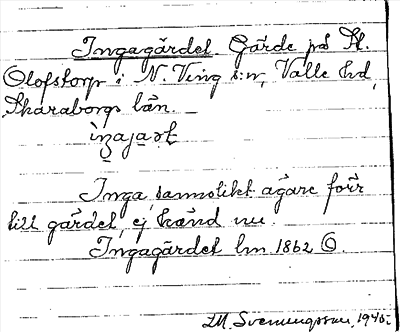 Ingagärdet. Gärde på St.
Olofstorp i N. Ving s:n, Valle hd,
Skaraborgs län.
Inga, sannolikt ägare förr
till gärdet, ej känd nu.
Ingagärdet lm 1862 Ö.
Svenungsson, 1940.